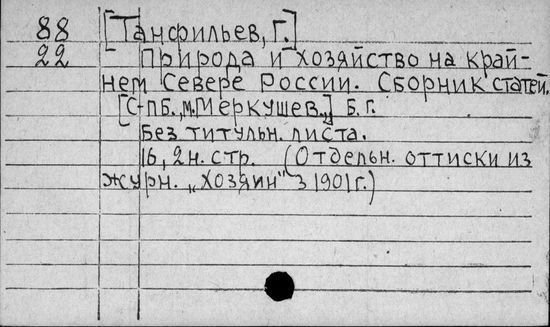 88 [Танфильев, Г.]
22 Природа и хозяйство на край-
нем Севере России. Сборник статей.
[С-ПБ., М. Меркушев.,] Б. г.
Без титульн. листа.
16, 2 н. стр. (Отдельн. оттиски из
журн. „Хозяин" з 1901 г.)